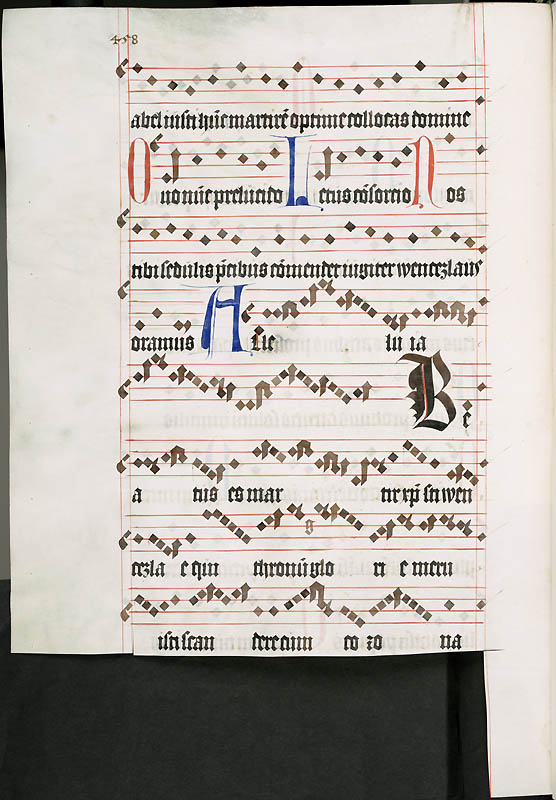 458
abel iusti hūc martirē optime collocas domine
Quo nūc prelucido Letus cōsorcio Nos
tibi sedulis p̄cibus cōmendet iugiter wenczlaus
oramus Alle lu ia
Be
a tus es mar tir xp̄i sti wen
cezla e qui thronū glo ri e meru
isti scan dere cum co ro na